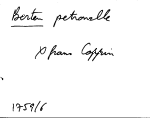 Berten petronelle
x frans Coppin
1759/6